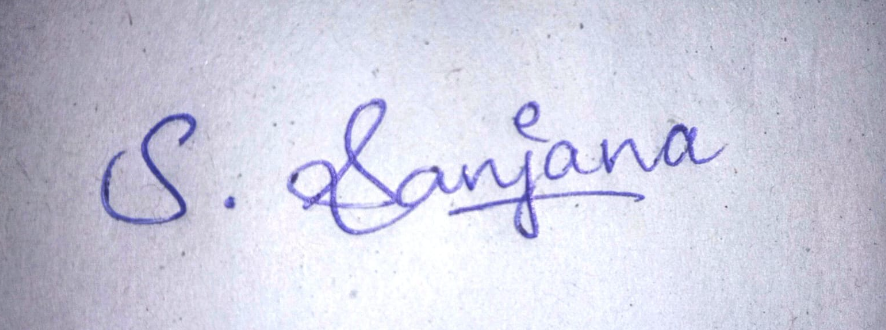 S. Sanjana